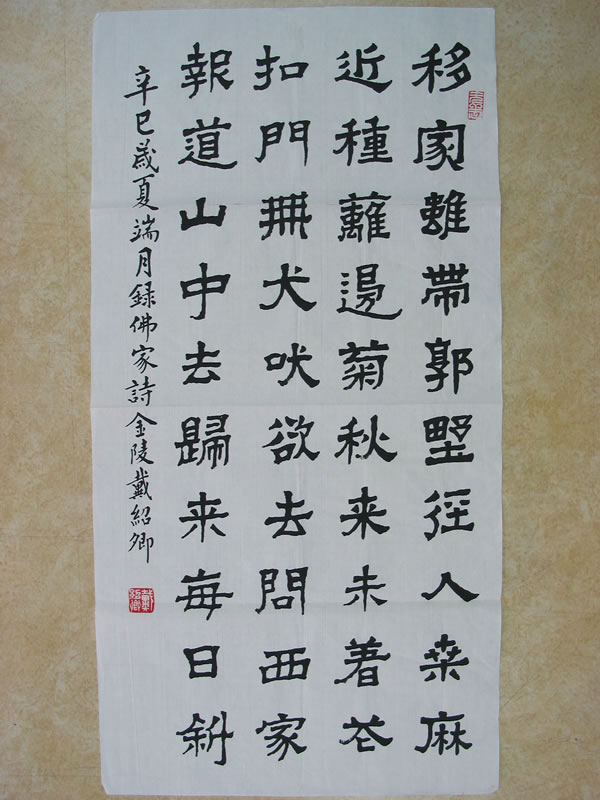 移家雖帶郭野徑入桑麻
近種籬邊菊秋来未着花
扣門無犬吠欲去問西家
報道山中去歸来每日斜
辛巳歲夏端月録佛家詩金陵戴紹卿